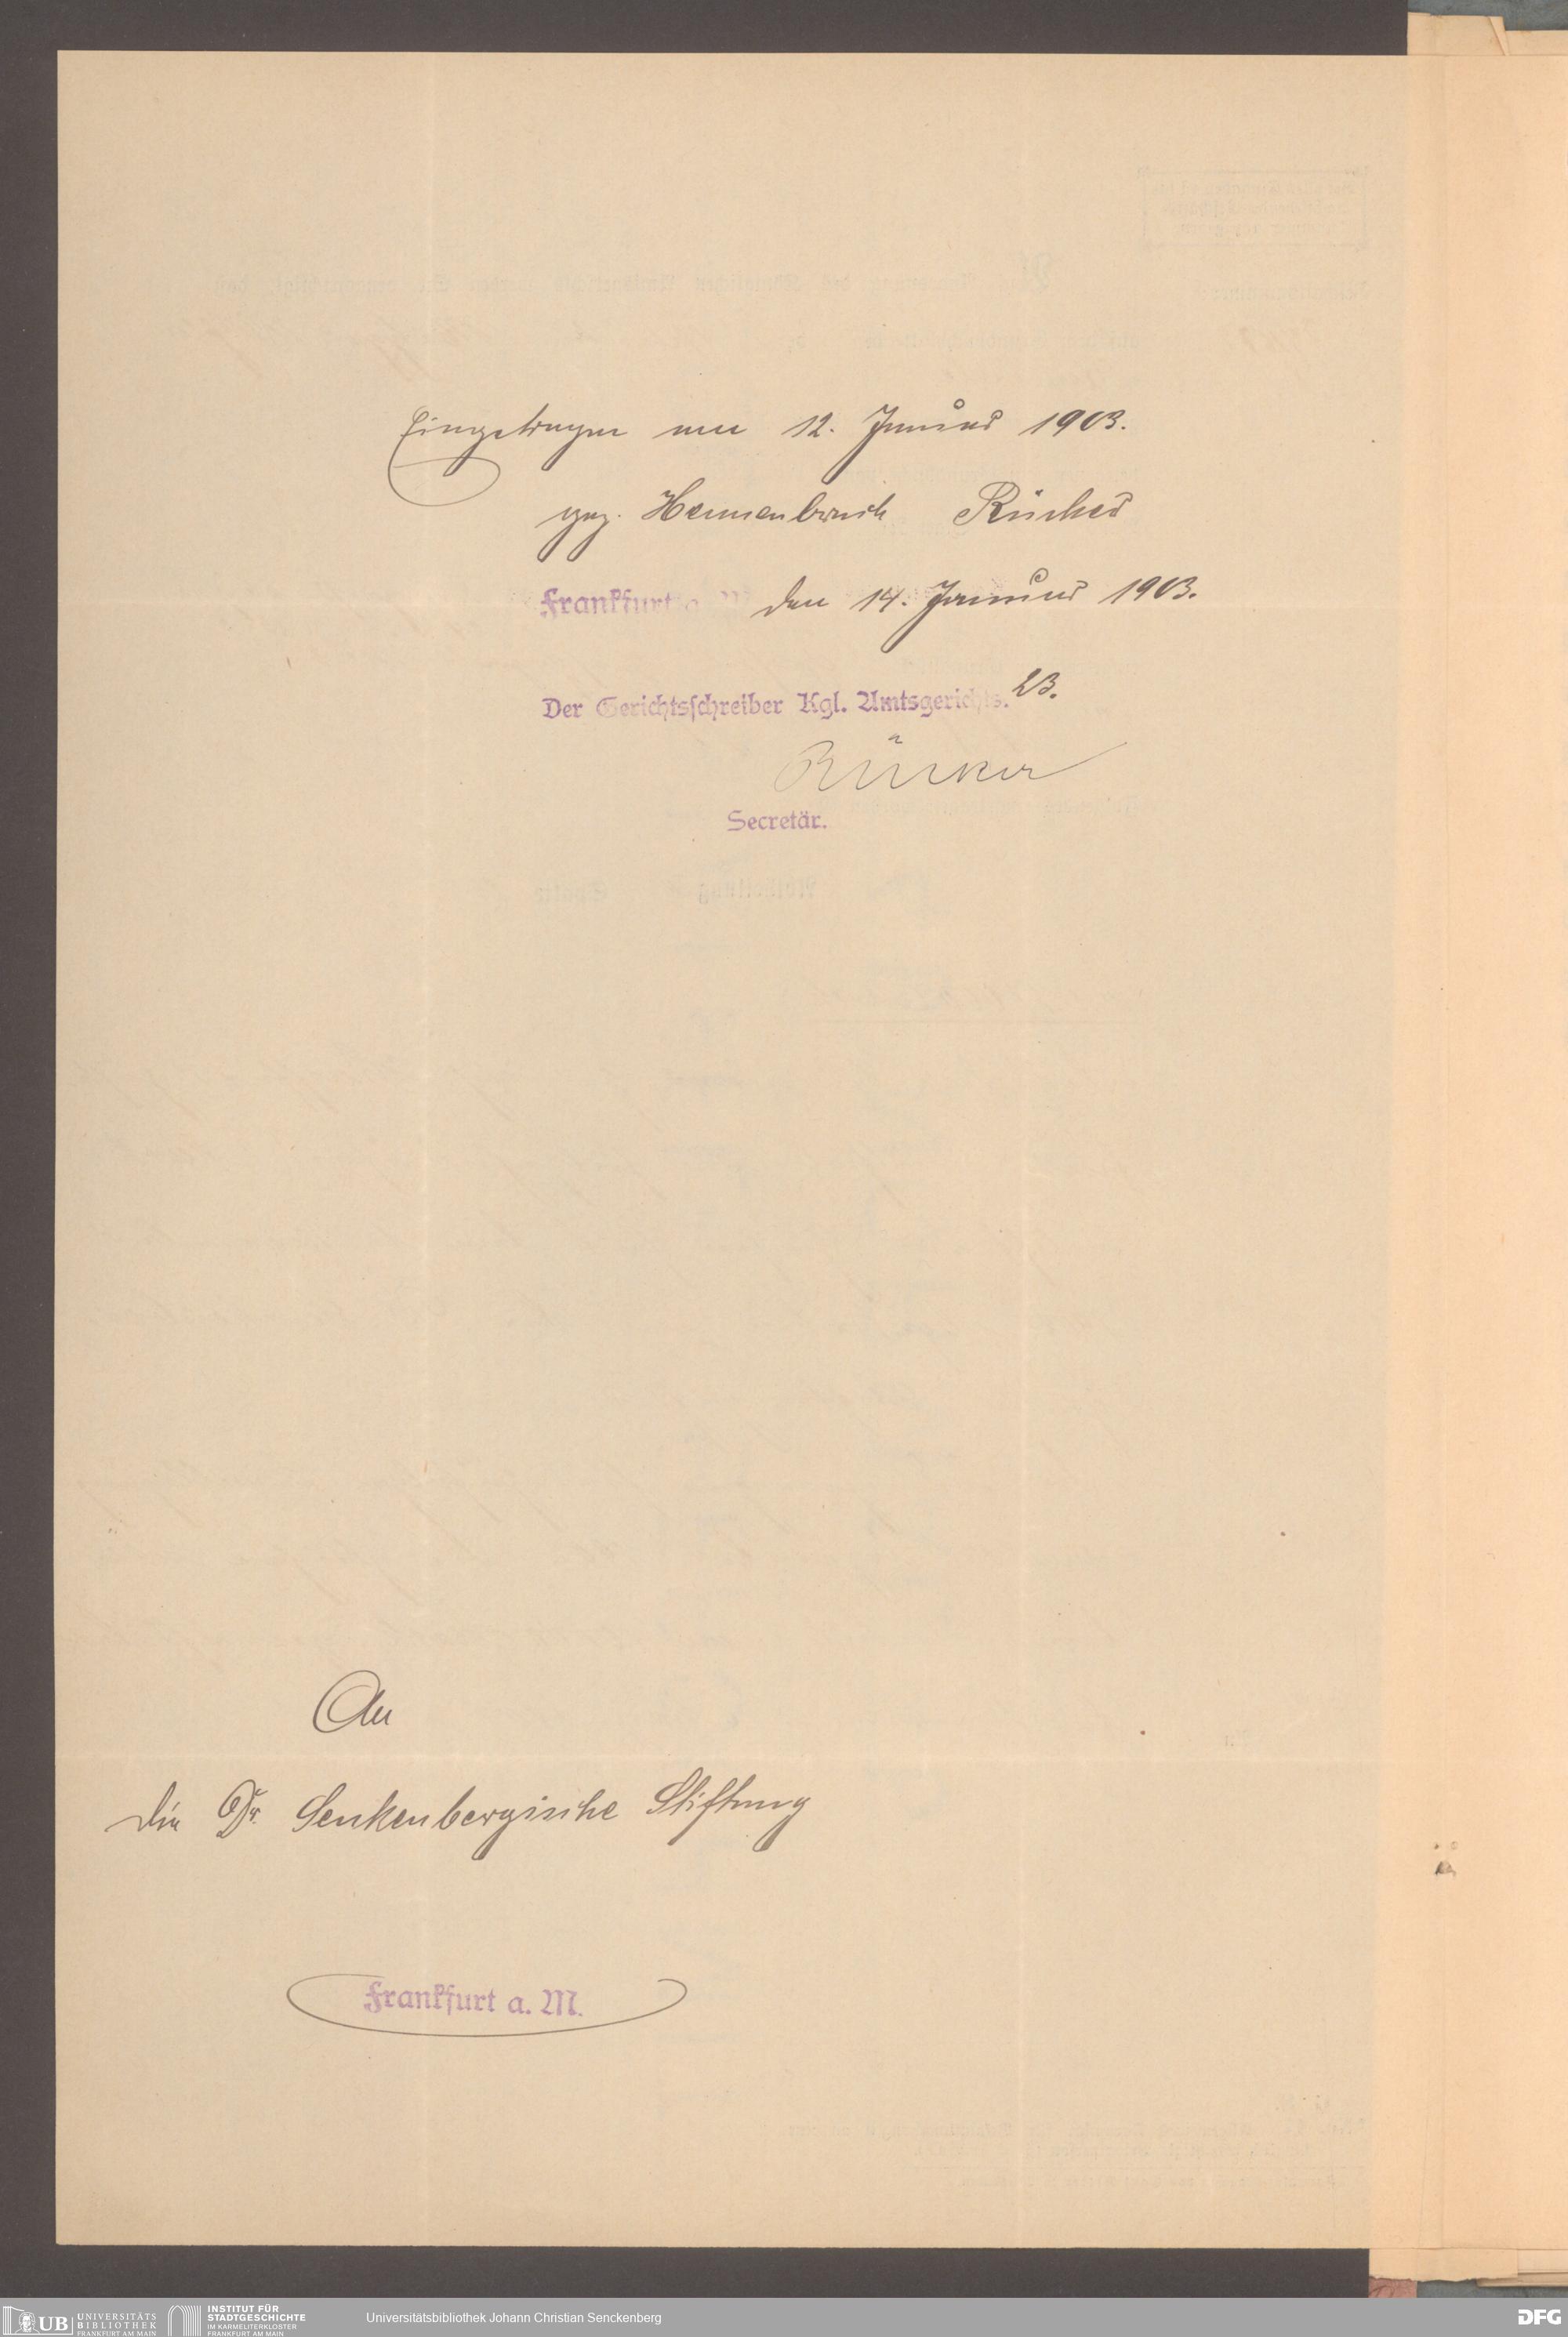 Eingetragen am 12. Januar 1903.
gez. Hannenbruch Rücker
Frankfurt a. M den 14. Januar 1903.
Der Gerichtsschreiber Kgl. Amtsgerichts. 23.
Rücker
Secretär.
An
die Dr. Senkenbergische Stiftung
Frankfurt a. M.
UB UNIVERSITÄTS
BIBLIOTHEK
FRANKFURT AM MAIN
INSTITUT FÜR
STADTGESCHICHTE
IM KARMELITERKLOSTER
FRANKFURT AM MAIN
Universitätsbibliothek Johann Christian Senckenberg
DFG